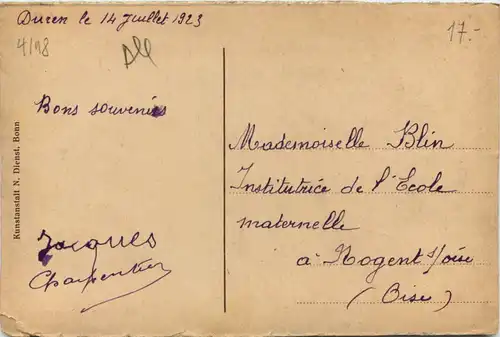 Duren le 14 Juillet 1923
4/18
All
17.-
Bons souvenirs
Jacques
Charpentier
Mademoiselle Blin
Institutrice de l'Ecole
maternelle
à Nogent s/oise
(Oise)
Kunstanstalt N. Dienst, Bonn